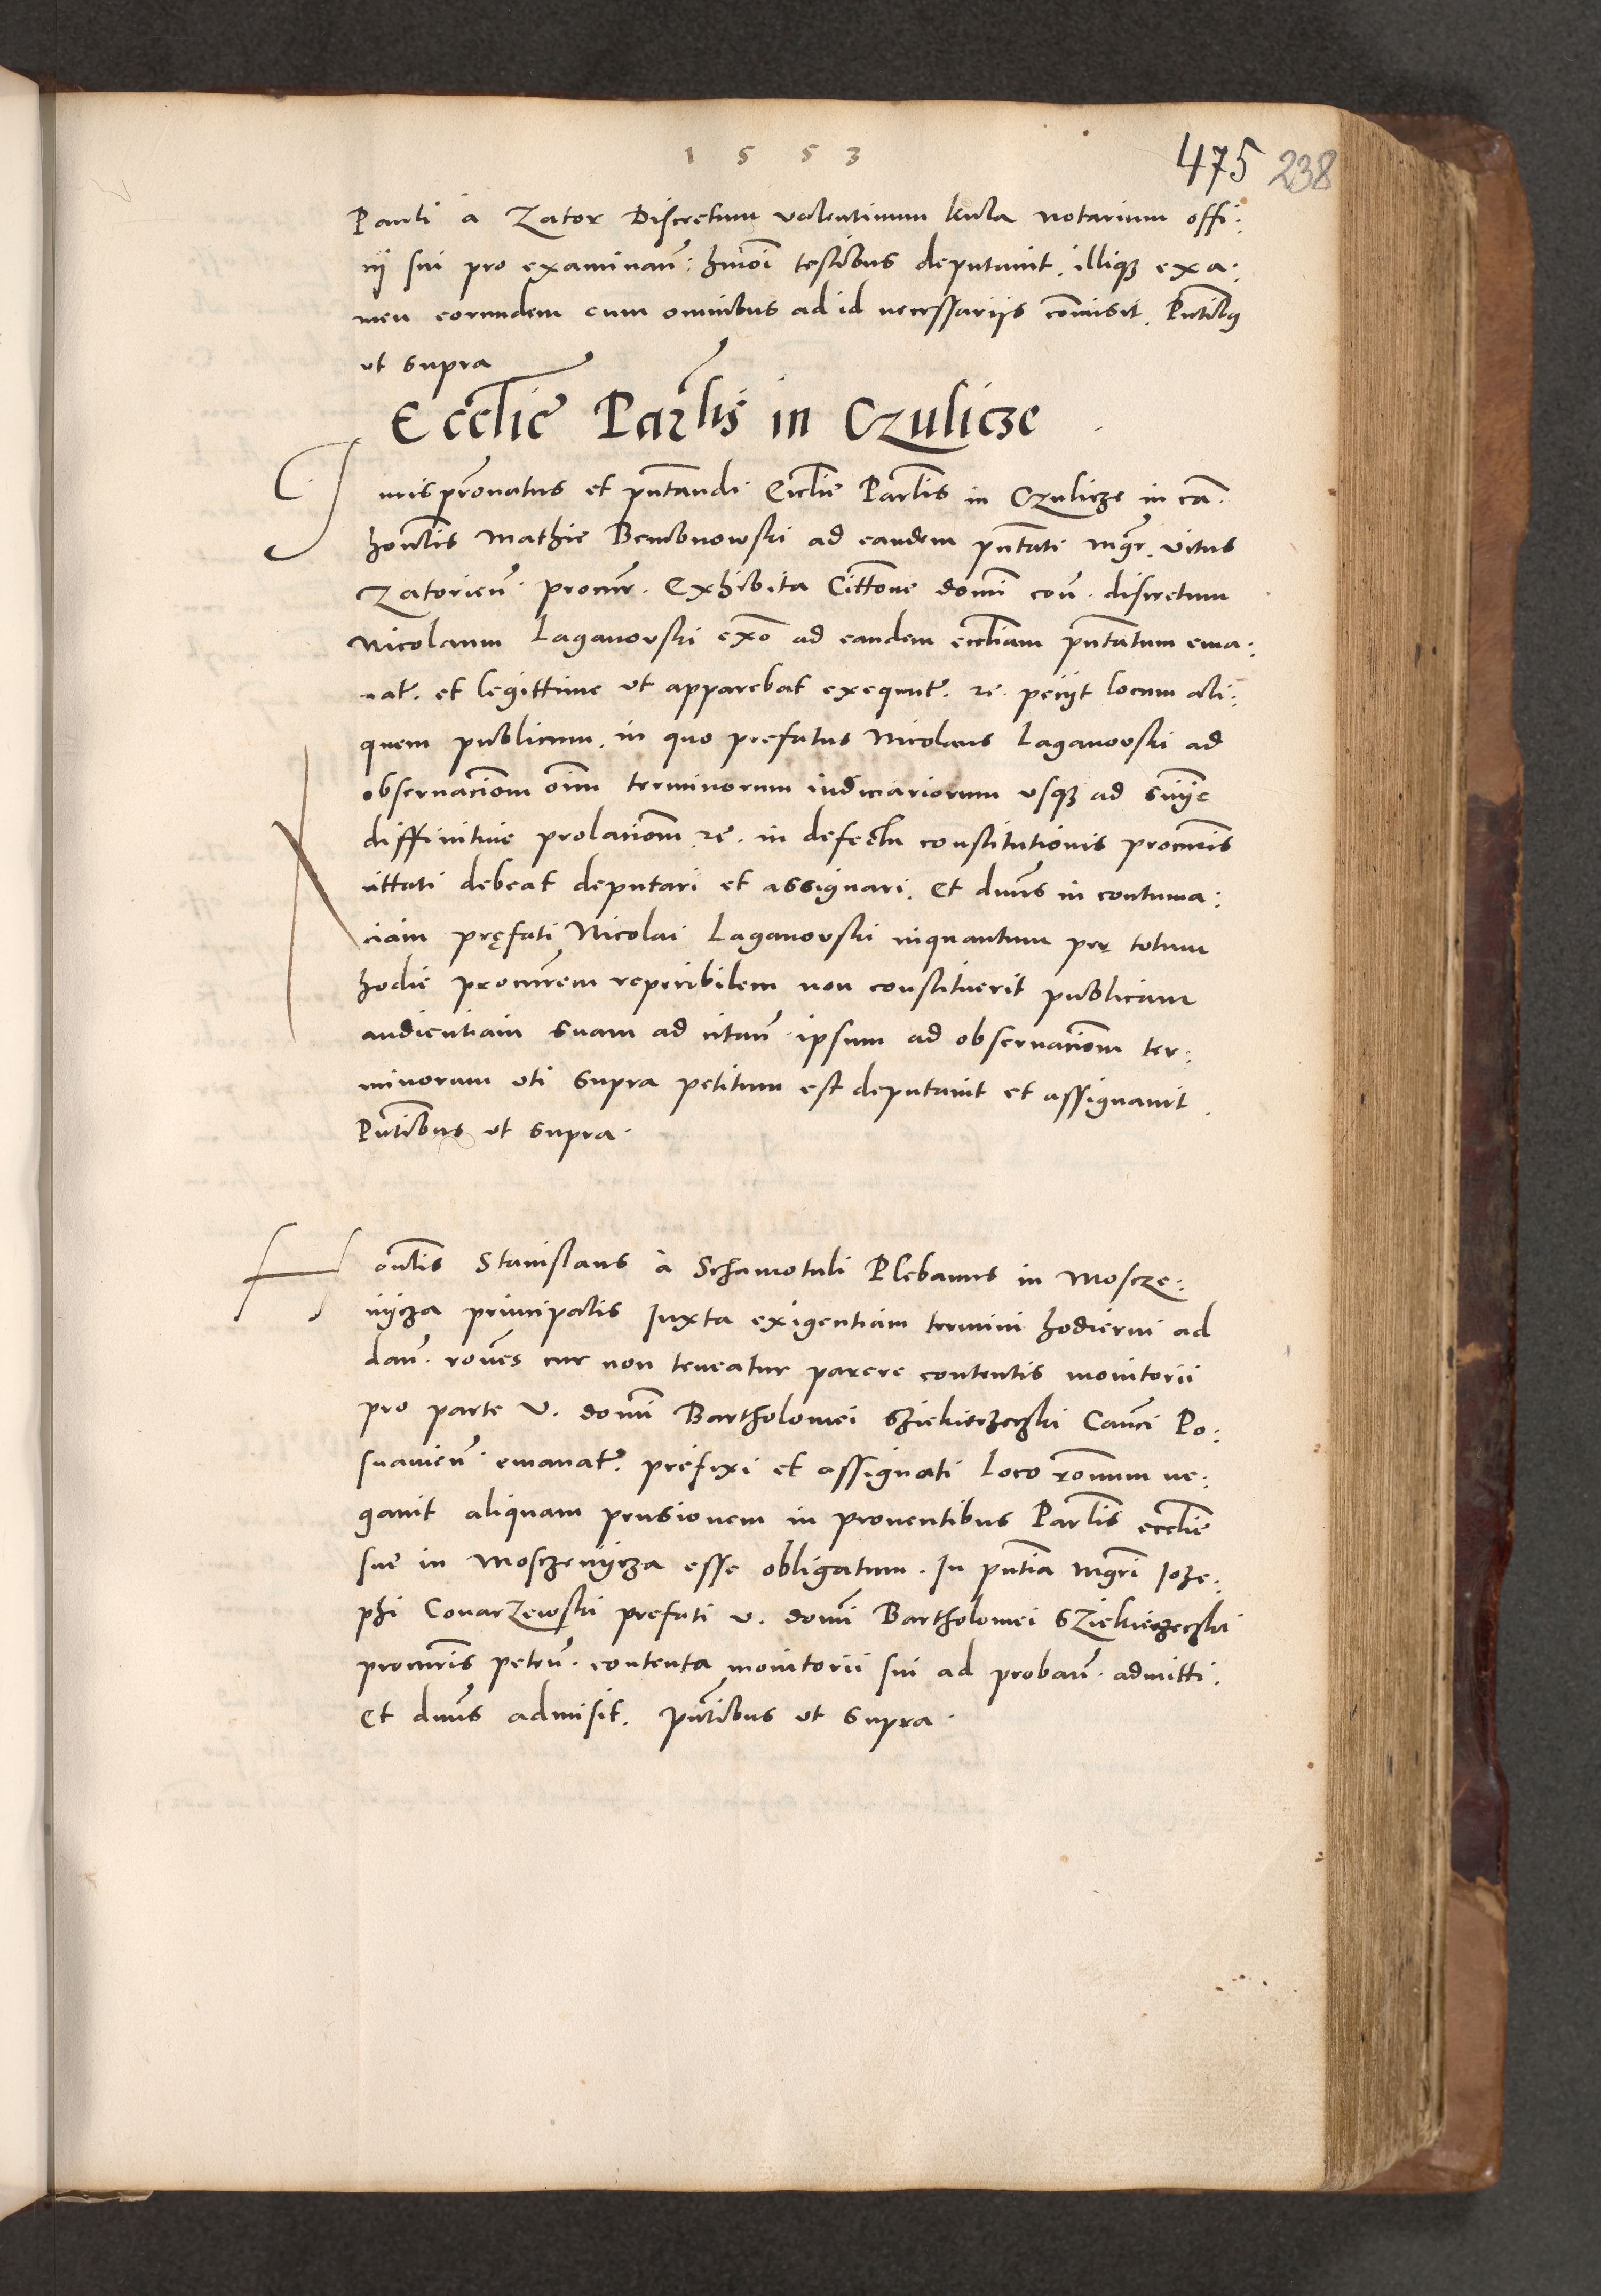 1553
475 238
Pauli a Zator Discretum valentinum kula notarium offi:
cij sui pro examinan: hmoi testibus deputavit. illiq3 exa:
men eorundem cum omnibus ad id necessariis comisit. Pntibq
ut supra
Ecclie Parlis in Czulicze
Juris pronatus et pntandi Ecclie Parlis in Czulicze in ca.
honlis Mathie Bembnowski ad eandem pntati mgr. vitus
Zatorien. procur. Exhibita Cittone domi con. discretum
Nicolaum Laganovski exo ad eandem eccliam pntatum ema:
nat. et legittime ut apparebat exequut. re. peciit locum ali:
quem publicum. in quo prefatus Nicolaus Laganovski ad
observaciom oim terminorum iudiciariorum usq3 ad snije
diffinitive prolaciom re. in defectu constitutionis procuris
cittati debeat deputari et assignari. Et dnus in contuma:
ciam pręfati Nicolai Laganovski inquantum per totum
hodie procurem reperibilem non constituerit publicam
audientiam suam ad citan. ipsum ad observaciom ter:
minorum uti supra petitum est deputavit et assignavit.
Pntibus ut supra.
Honlis Stanislaus à Schamotuli Plebanus in Moscze:
nijcza principalis Iuxta exigentiam termini hodierni ad
dan. rones cur non teneatur parere contentis monitorii
pro parte V. domi Bartholomei Sziekierzeczki Canci Po:
snanien. emanat. prefixi et assignati Loco ronum ne:
gavit aliquam pensionem in proventibus Parlis ecclie
sue in Mosczenijcza esse obligatum. In pntia mgri Ioze:
phi Covarzewski prefati v. domi Bartholomei Sziekierzeczki
procuris peten. contenta monitorii sui ad proban. admitti.
Et dnus admisit. pntibus ut supra.